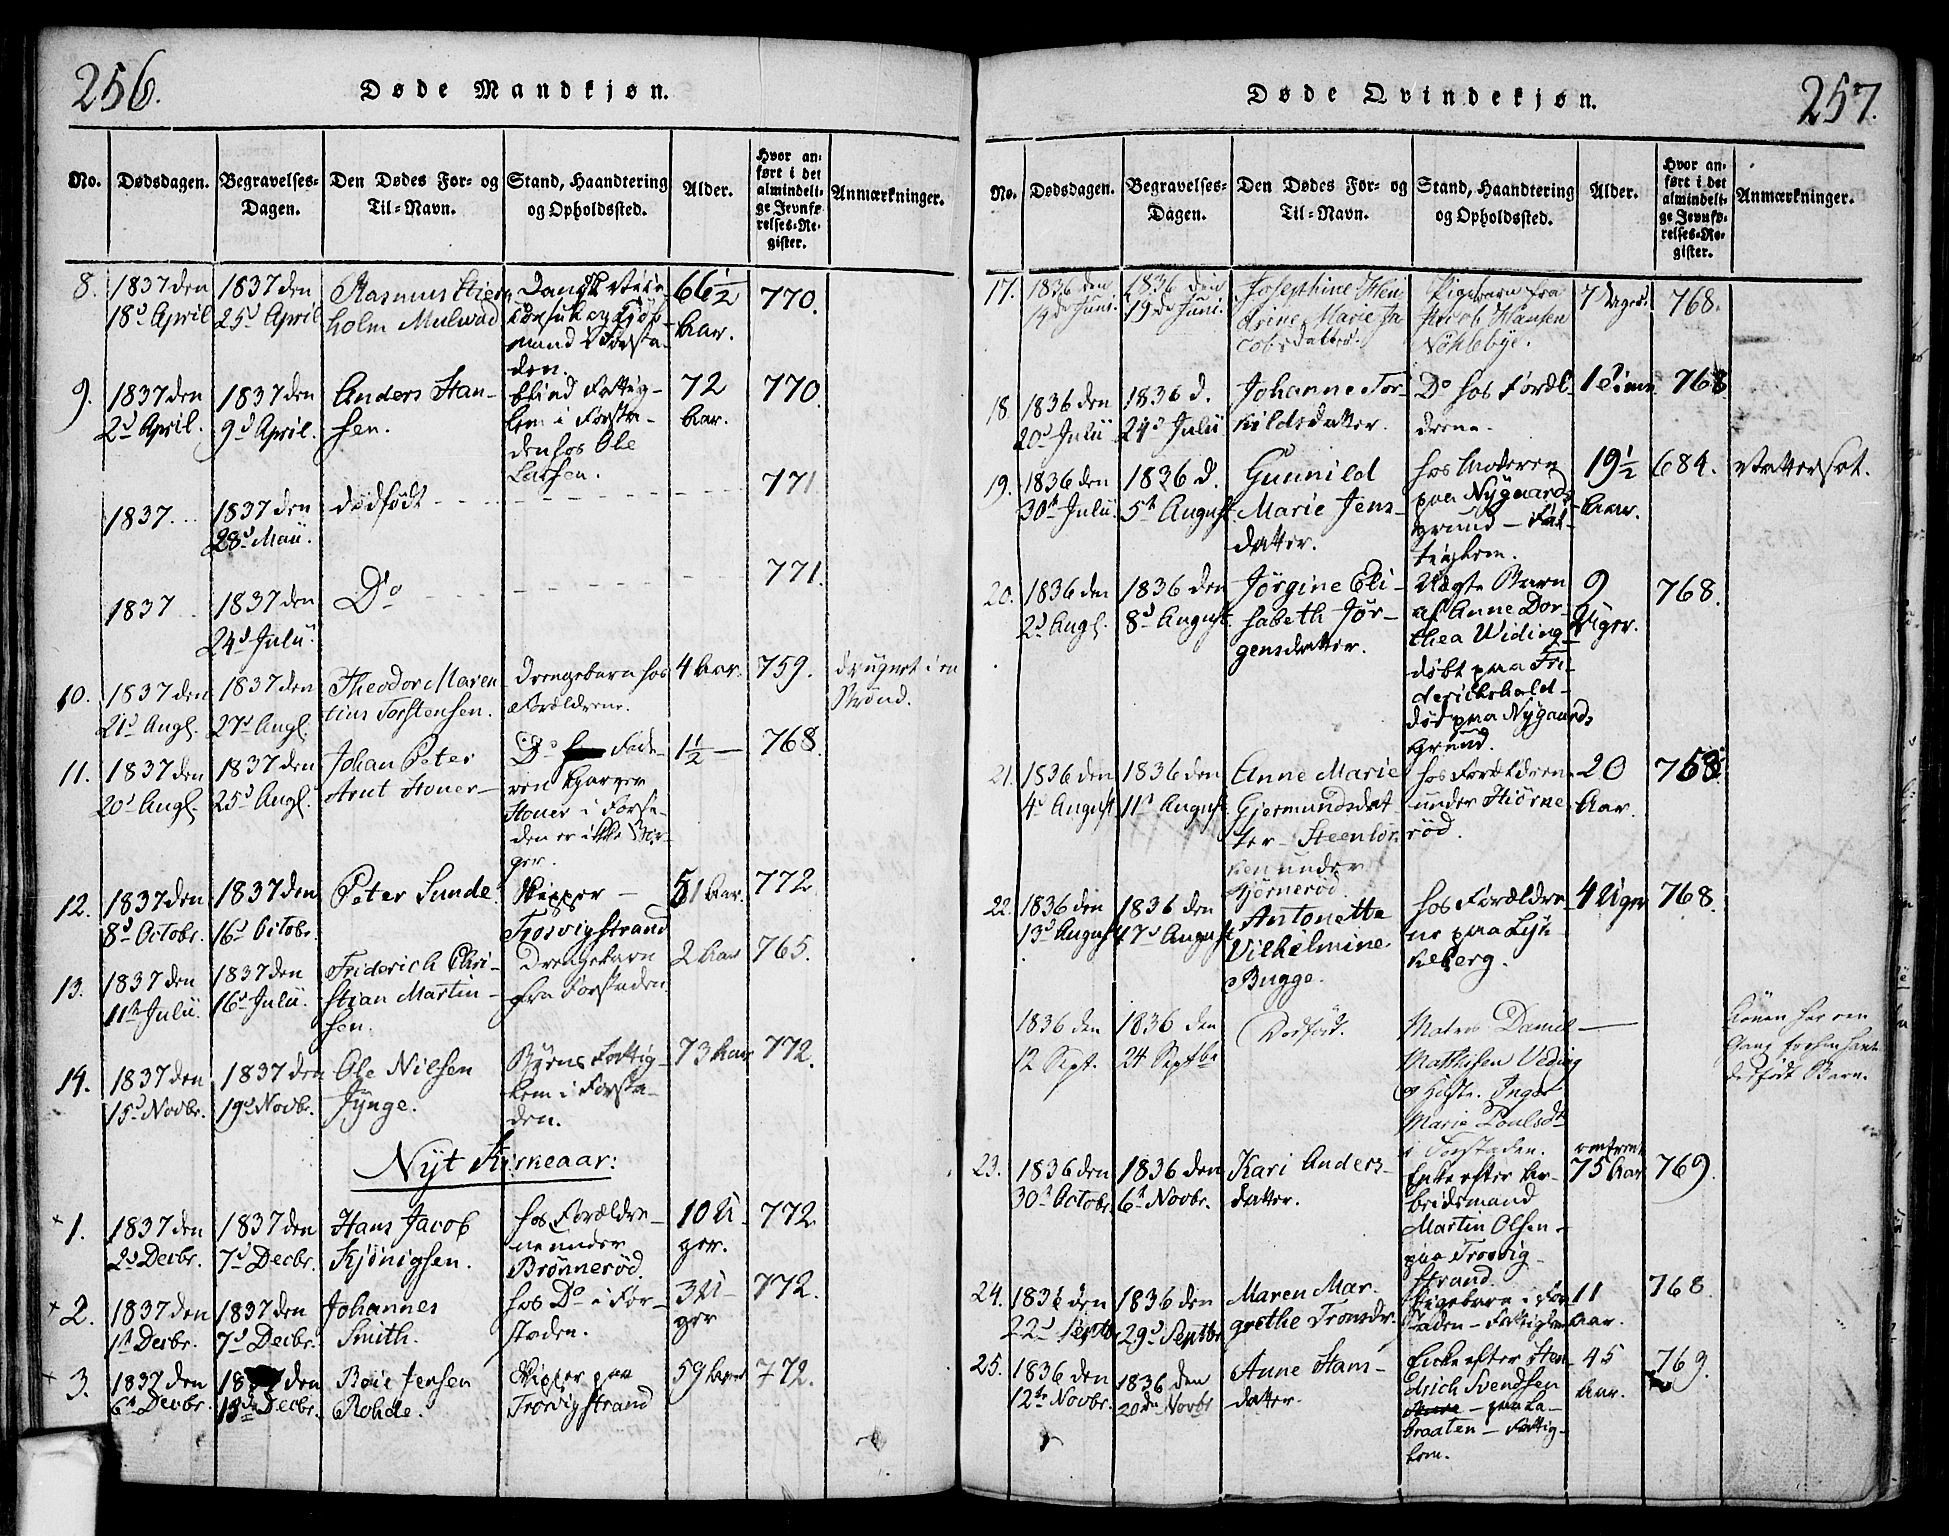 256.
Døde Mandkjøn.
No.
Dødsdagen.
Begravelses-
Dagen.
Den Dødes For- og
Til-Navn.
Stand, Haandtering
og Opholdssted.
Alder.
Hvor an-
ført i det
almindeli-
ge Jevnfø-
relses-Re-
gister.
Anmærkninger.
8.
1837 den
18d April
1837 den
25d April
Rasmus Stier
holm Mulwad
Dansk Vice
Consul og Kjøb
mand i Forsta-
den.
66½
Aar.
770.
9.
1837 den
2d April.
1837 den
9d April.
Anders Han-
sen.
blind Fattig-
lem i Forsta-
den hos Ole
Larsen.
72
Aar.
770.
1837
1837 den
28d Maii.
dødfødt
771
1837
1837 den
24d Julii.
Do
771.
10.
1837 den
21d Augl.
1837 den
27d Augl.
Theodor Maren
tius Torstensen.
Drengebarn hos
Forældrene.
4 Aar.
759.
druknet i en
Brønd.
11.
1837 den
20d Augl.
1837 den
25d Augl.
Johan Peter
Arnt Hower
Do Fade-
ren Garver
Hower i Forsta-
den er ikke Bor-
ger.
1½
768
12.
1837 den
8d Octobr.
1837 den
16d Octobr.
Peter Sunde
Skipper
Trosvigstrand
51 Aar.
772
13.
1837 den
11te Julii.
1837 den
16d Julii.
Friderich Chri-
stian Martin-
sen.
Drengebarn
fra Forstaden.
2 Aar
765.
14.
1837 den
15d Novbr.
1837 den
19d Novbr.
Ole Nilsen
Jynge.
Byens Fattig-
lem i Forsta-
den.
73 Aar
772.
Nyt Kirkeaar:
1.
1837 den
2d Decbr.
1837 den
7d Decbr.
Hans Jacob
Kjønigsen.
hos Forældre-
ne under
Brønnerød.
10 U-
ger.
772
2.
1837 den
1te Decbr.
1837 den
7d Decbr.
Johannes
Smith.
hos Do i For-
staden.
3 U-
ger
772.
3.
1837 den
6te Decbr.
den
13d Decbr.
Boie Jensen
Rohde.
Skipper paa
Trosvigstrand
59 Aar
772.
257.
Døde Qvindekjøn.
No.
Dødsdagen.
Begravelses-
Dagen.
Den Dødes For- og
Til-Navn.
Stand, Haandtering
og Opholdssted.
Alder.
Hvor an-
ført i det
almindeli-
ge Jevnfø-
relses-Re-
gister.
Anmærkninger.
17.
1836 den
14de Juni.
1836 den
19de Juni.
Josephine Hen
drine Marie Ja
cobsdatter.
Pigebarn fra
Jacob Hansen
Nøklebye.
7 Uger.
768.
18
1836 den
20d Julii
1836 d.
24d Julii
Johanne Tor-
kildsdatter.
Do hos Foræl-
drene.
1 Time
768
19.
1836 den
30te Julii.
1836 d.
5te August.
Gunnild
Marie Jens-
datter.
hos Moderen
paa Nygaards
grund — Fat-
tiglem.
19½
Aar.
684.
Vattersot.
20.
1836 den
2d Augl.
1836 den
8d August.
Jørgine Eli-
sabeth Jør-
gensdatter.
Uægte Barn
af Anne Dor-
thea Widing
døbt paa Fri-
derichshald-
død paa Nygaards
Grund.
9
Uger.
768.
21.
1836 den
4d August
1836 den
11te August
Anne Marie
Gjermundsdat
ter — Steenløk
ken under
Hjørnerød.
hos Forældren
under Hiørne
rød.
20
Aar.
768.
22.
1836 den
13d August
1836 den
17d August
Antonette
Vilhelmine
Bugge.
hos Forældre
ne paa Lyk
keberg.
4 Uger
768.
1836 den
12 Sept.
1836 den
24 Septbr
Dødfød.
Matros Daniel
Mathisen Veding
og Hustr. Inger
Marie Poulsdtr
i Forstaden.
Konen har een
Gang før
dødfødt Barn.
23.
1836 den
30te Octobr.
1836 den
6te Novbr.
Kari Anders-
datter.
Enke efter Ar-
beidsmand
Martin Olsen
paa Trosvig-
strand.
omtrent
75 Aar
769.
24.
1836 den
22d Septbr
1836 den
29d Septbr
Maren Mar-
grethe Tronsdr.
Pigebarn i For-
staden — Fattiglem
11
Aar.
768
25.
1836 den
12te Novbr.
1836 den
20de Novbr
Anne Hans-
datter.
Enke efter Hen-
drich Svendsen
— paa La-
braaten — Fattig-
lem.
45
Aar.
769.